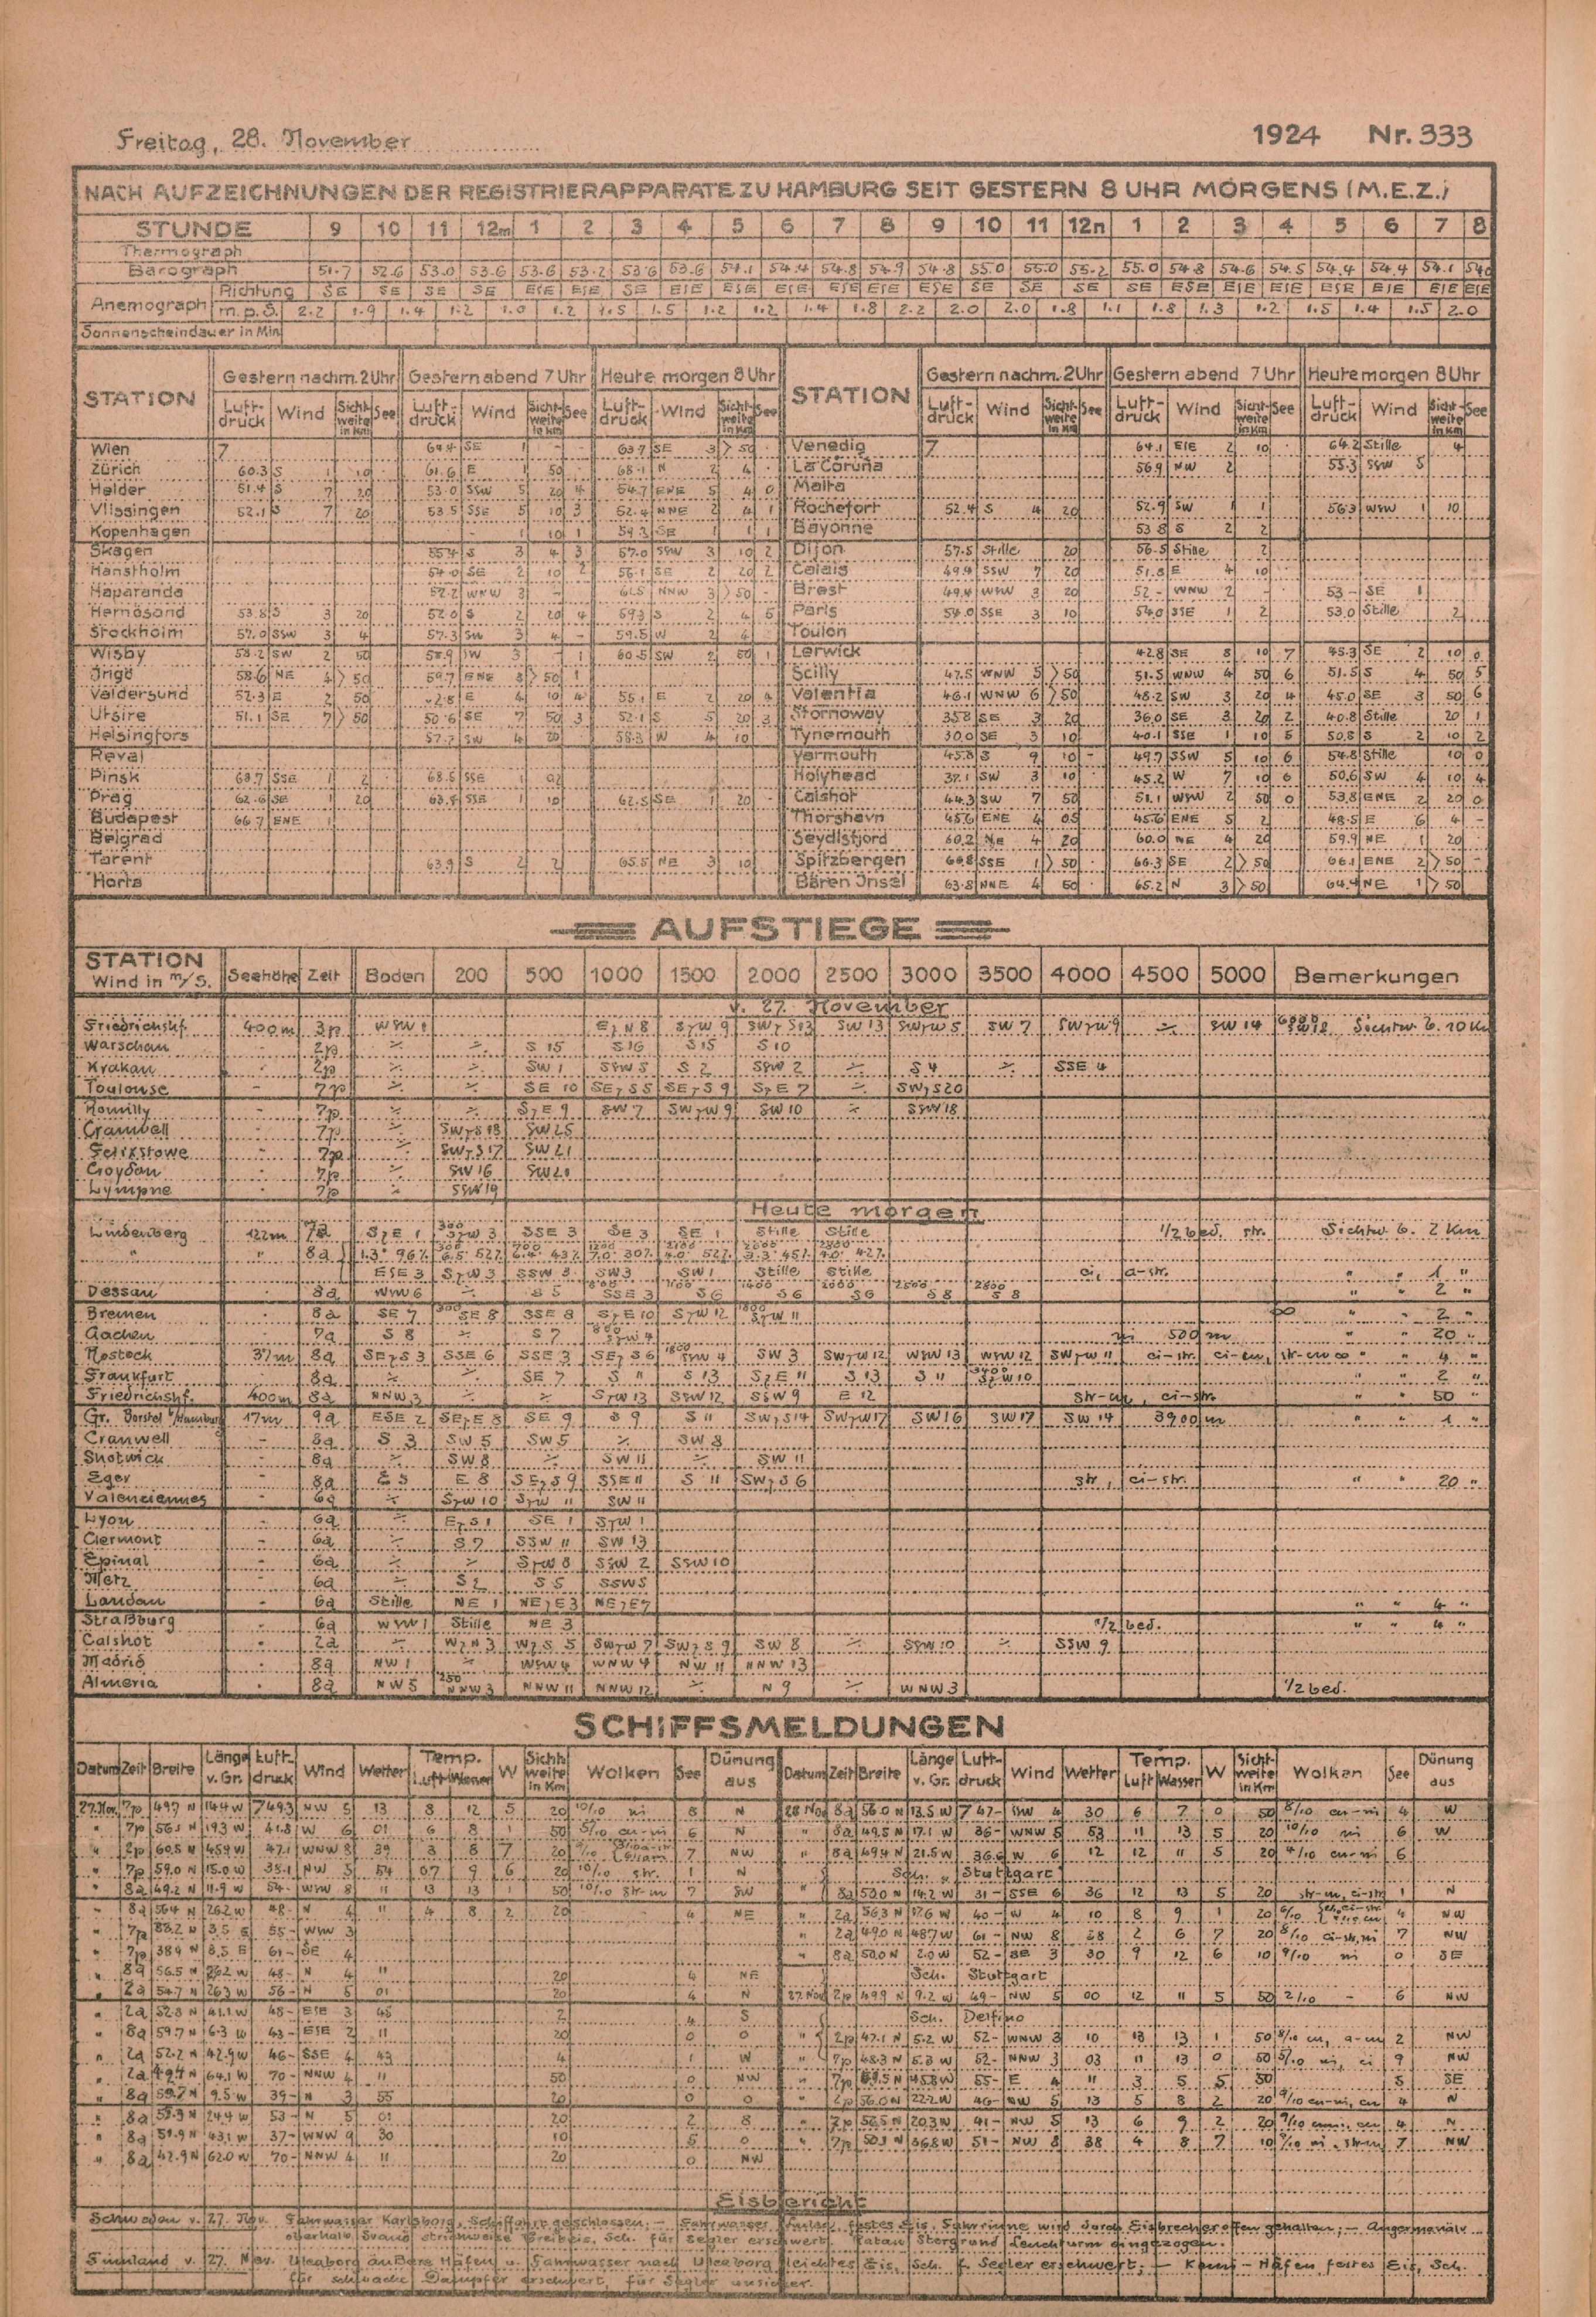 Freitag, 28. November 1924 Nr. 333
NACH AUFZEICHNUNGEN DER REGISTRIERAPPARATE ZU HAMBURG SEIT GESTERN 8 UHR MORGENS (M.E.Z.)
STUNDE 9 10 11 12m 1 2 3 4 5 6 7 8 9 10 11 12n 1 2 3 4 5 6 7 8
Thermograph
Barograph 51.7 52.6 53.0 53.6 53.6 53.2 53.6 53.6 54.1 54.4 54.8 54.9 54.8 55.0 55.0 55.2 55.0 54.8 54.6 54.5 54.4 54.4 54.1
Anemograph Richtung SE SE SE SE ESE ESE SE ESE ESE ESE ESE ESE ESE SE SE SE SE ESE ESE ESE ESE ESE ESE ESE
m.p.S. 2.2 1.9 1.4 1.2 1.0 1.2 1.5 1.5 1.2 1.2 1.4 1.8 2.2 2.0 2.0 1.8 1.1 1.8 1.3 1.2 1.5 1.4 1.5 2.0
Sonnenscheindauer in Min.
STATION Gestern nachm. 2 Uhr Gestern abend 7 Uhr Heute morgen 8 Uhr STATION Gestern nachm. 2 Uhr Gestern abend 7 Uhr Heute morgen 8 Uhr
Luftdruck Wind Sichtweite in Km See Luftdruck Wind Sichtweite in Km See Luftdruck Wind Sichtweite in Km See Luftdruck Wind Sichtweite in Km See Luftdruck Wind Sichtweite in Km See Luftdruck Wind Sichtweite in Km See
Wien 7 64.4 SE 1 63.7 SE 3 >50 Venedig 7 64.1 ESE 2 10 64.2 Stille 4
Zürich 60.3 S 1 10 61.6 E 1 50 68.1 N 2 4 La Coruña 56.9 NW 2 55.3 SSW 5
Helder 51.4 S 7 20 53.0 SSW 5 20 4 54.7 ENE 5 4 0 Malta
Vlissingen 52.1 S 7 20 53.5 SSE 5 10 3 52.4 NNE 2 4 1 Rochefort 52.4 S 4 20 52.9 SW 1 1 56.3 WSW 1 10
Kopenhagen - 1 10 1 59.3 SE 1 1 1 Bayonne 53.8 S 2 2
Skagen 55.4 S 3 4 3 57.0 SSW 3 10 2 Dijon 57.5 Stille 20 56.5 Stille 2
Hanstholm 54.0 SE 2 10 2 56.1 SE 2 20 2 Calais 49.4 SSW 7 20 51.8 E 4 10
Haparanda 52.2 WNW 3 - 61.5 NNW 3 >50 - Brest 49.4 WSW 3 20 52.- WNW 2 - 53 - SE 1
Hernösand 53.8 S 3 20 52.0 S 2 20 4 59.3 S 2 4 5 Paris 54.0 SSE 3 10 54.0 SSE 1 2 53.0 Stille 2
Stockholm 57.0 SSW 3 4 57.3 SW 3 4 - 59.5 W 2 4 Toulon
Wisby 58.2 SW 2 50 58.9 SW 3 - 1 60.5 SW 2 50 1 Lerwick 42.8 SE 8 10 7 45.3 SE 2 10 0
Ingö 58.6 NE 4 >50 59.7 ENE 3 >50 1 Scilly 47.5 WNW 5 >50 51.5 WNW 4 50 6 51.5 S 4 50 5
Valdersund 52.3 E 2 50 E 4 10 4 55.1 E 2 20 4 Valentia 46.1 WNW 6 >50 48.2 SW 3 20 4 45.0 SE 3 50 6
Utsire 51.1 SE 7 >50 50.6 SE 7 50 3 52.1 S 5 20 3 Stornoway 35.8 SE 3 20 36.0 SE 3 20 2 40.8 Stille 20 1
Helsingfors 57.7 SW 4 20 58.3 W 4 10 Tynemouth 30.0 SE 3 10 40.1 SSE 1 10 5 50.8 S 2 10 2
Reval Yarmouth 45.8 S 9 10 - 49.7 SSW 5 10 6 54.8 Stille 10 0
Pinsk 68.7 SSE 1 2 68.5 SSE 1 Holyhead 37.1 SW 3 10 45.2 W 7 10 6 50.6 SW 4 10 4
Prag 62.6 SE 1 20 63.8 SSE 1 10 62.5 SE 1 20 Calshot 44.3 SW 7 50 51.1 WSW 2 50 0 53.8 ENE 2 20 0
Budapest 66.7 ENE 1 Thorshavn 45.6 ENE 4 0.5 45.6 ENE 5 2 48.5 E 6 4 -
Belgrad Seydisfjord 60.2 NE 4 20 60.0 NE 4 20 59.9 NE 1 20
Tarent 63.9 S 2 2 65.5 NE 3 10 Spitzbergen SSE 1 >50 66.3 SE 2 >50 66.1 ENE 2 >50 -
Horta Bären Insel 63.8 NNE 4 50 65.2 N 3 >50 64.4 NE 1 >50
AUFSTIEGE
STATION Wind in m/s. Seehöhe Zeit Boden 200 500 1000 1500 2000 2500 3000 3500 4000 4500 5000 Bemerkungen
v. 27. November
Friedrichshf. 400m 3p WSW 1 EzN 8 SzW 9 SWzS 13 SW 13 SWzW 5 SW 7 SWzW 9 ⁒ SW 14 6000 SW 18 Sichtw. b. 10 Km
Warschau 2p ⁒ ⁒ S 15 S 16 S 15 S 10
Krakau 2p ⁒ ⁒ SW 1 SSW 5 S 2 SSW 2 ⁒ S 4 ⁒ SSE 4
Toulouse - 7p ⁒ ⁒ SE 10 SEzS 5 SEzS 9 SzE 7 ⁒ SWzS 20
Romilly - 7p ⁒ ⁒ SzE 9 SW 7 SWzW 9 SW 10 ⁒ SSW 18
Cranwell 7p ⁒ SWzS 18 SW 25
Felixstowe 7p ⁒ SWzS 17 SW 21
Croydon 7p ⁒ SW 16 SW 21
Lympne 7p ⁒ SSW 19
Heute morgen
Lindenberg 122m 7a SzE 1 300 SzW 3 SSE 3 SE 3 SE 1 Stille Stille 1/2 bed. str. Sichtw. b. 2 Km
" " 8a 1.3° 96% 300 6.5° 52% 700 6.4° 43% 1200 7.0° 30% 4.0° 52% 3.3° 45% 42%
ESE 3 SzW 3 SSW 3 SW 3 SW 1 Stille Stille ci, a-str. " " 1 "
Dessau 8a WNW 6 ⁒ S 5 800 SSE 3 1100 S 6 1400 S 6 2000 S 6 2500 S 8 2800 S 8 " " 2 "
Bremen 8a SE 7 300 SE 8 SSE 8 SzE 10 SzW 12 1800 SzW 11 ∞ " " 2 "
Aachen 7a S 8 ⁒ S 7 800 SzW 4 ni 500 m " " 20 "
Rostock 37m 8a SEzS 3 SSE 6 SSE 3 SEzS 6 1800 SSW 4 SW 3 SWzW 12 WSW 13 WSW 12 SWzW 11 ci-str. ci-cu, str-cu ∞ " " 4 "
Frankfurt 8a ⁒ ⁒ SE 7 S 11 S 13 SzE 11 S 13 S 11 3400 SzW 10 " " 2 "
Friedrichshf. 400m 8a NNW 3 ⁒ ⁒ SzW 13 SSW 12 SSW 9 E 12 str-cu, ci-str. " " 50 "
Gr. Borstel b/Hamburg 17m 9a ESE 2 SEzE 8 SE 9 S 9 S 11 SWzS 14 SWzW 17 SW 16 SW 17 SW 14 3900 m " " 1 "
Cranwell - 8a S 3 SW 5 SW 5 ⁒ SW 8
Shotwick - 8a SW 8 ⁒ SW 11 ⁒ SW 11
Eger 8a E 5 E 8 SEzS 9 SSE 11 S 11 SWzS 6 str, ci-str. " " 20 "
Valenciennes 6a ⁒ SzW 10 SzW 11 SW 11
Lyon - 6a ⁒ EzS 1 SE 1 SzW 1
Clermont - 6a ⁒ S 7 SSW 11 SW 13
Epinal - 6a ⁒ ⁒ SzW 8 SSW 2 SSW 10
Metz - 6a ⁒ S 2 S 5 SSW 5
Landau - 6a Stille NE 1 NEzE 3 NEzE 7 " " 4 "
Straßburg 6a WSW 1 Stille NE 3 1/2 bed. " " 4 "
Calshot 2a ⁒ WzN 3 WzS 5 SWzW 7 SWzS 9 SW 8 ⁒ SSW 10 ⁒ SSW 9
Madrid 8a NW 1 ⁒ WSW 4 WNW 4 NW 11 NNW 13
Almeria 8a NW 5 250 NNW 3 NNW 11 NNW 12 ⁒ N 9 ⁒ WNW 3 1/2 bed.
SCHIFFSMELDUNGEN
Datum Zeit Breite Länge v. Gr. Luftdruck Wind Wetter Temp. Luft Wasser W Sichtweite in Km Wolken See Dünung aus Datum Zeit Breite Länge v. Gr. Luftdruck Wind Wetter Temp. Luft Wasser W Sichtweite in Km Wolken See Dünung aus
27. Nov. 7p 49.7 N 14.4 W 749.3 NW 5 13 8 12 5 20 10/10 ni 8 N 28 Nov 8a 56.0 N 13.5 W 747- SSW 4 30 6 7 0 50 8/10 cu-ni 4 W
" 7p 56.1 N 19.3 W 41.8 W 6 01 6 8 1 50 5/10 cu-ni 6 N " 8a 49.5 N 17.1 W 36- WNW 5 53 11 13 5 20 10/10 ni 6 W
" 2p 60.5 N 45.9 W 47.1 WNW 8 39 3 8 7 20 7 NW " 8a 49.4 N 21.5 W 36.6 W 6 12 12 11 5 20 4/10 cu-ni 6
" 7p 59.0 N 15.0 W 38.1 NW 5 54 0.7 9 6 20 10/10 str. 1 N Sch. „Stuttgart"
" 8a 49.2 N 11.9 W 54- WSW 8 11 13 13 1 50 10/10 str-ni 7 SW " 8a 50.0 N 14.2 W 31- SSE 6 36 12 13 5 20 str-ni, ci-str 1 N
" 8a 56.4 N 26.2 W 48- N 4 11 4 8 2 20 - 4 NE " 2a 56.3 N 17.6 W 40- W 4 10 8 9 1 20 4 NW
" 7p 3.5 E 55- WSW 3 " 2a 49.0 N 48.7 W 61- NW 8 28 2 6 7 20 8/10 ci-str, ni 7 NW
" 7p 38.9 N 8.5 E 61- SE 4 " 8a 50.0 N 2.0 W 52- SE 3 30 9 12 6 10 9/10 ni 0 SE
" 8a 56.5 N 26.2 W 48- N 4 11 20 4 NE Sch. Stuttgart
" 2a 54.7 N 26.3 W 56- N 5 01 20 4 N 27 Nov 2p 49.9 N 9.2 W 49- NW 5 00 12 11 5 50 2/10 - 6 NW
" 2a 52.8 N 41.1 W 48- ESE 3 45 2 4 S Sch. Delfino
" 8a 59.7 N 6.3 W 43- ESE 2 11 20 0 0 " 2p 47.1 N 5.2 W 52- WNW 3 10 13 13 1 50 8/10 cu, a-cu 2 NW
" 2a 52.2 N 42.9 W 46- SSE 4 43 4 1 W " 7p 48.3 N 5.3 W 52- NNW 3 03 11 13 0 50 5/10 ni, ci 9 NW
" 2a 49.4 N 64.1 W 70- NNW 4 11 50 0 NW " 7p 45.8 W 55- E 4 11 3 5 5 50 5 SE
" 8a 59.7 N 9.5 W 39- N 3 55 20 0 0 " 2p 56.0 N 22.2 W 46- NW 5 13 5 8 2 20 9/10 cu-ni, cu 4 N
" 8a 24.4 W 53- N 5 01 20 2 8 " 7p 20.3 W 41- NW 5 13 6 9 2 20 4 N
" 8a 51.9 N 43.1 W 37- WNW 9 30 10 5 0 " 7p 50.1 N 36.8 W 51- NW 8 38 4 8 7 10 7 NW
" 8a 42.9 N 62.0 W 70- NNW 4 11 20 0 NW
Eisbericht
Schweden v. 27. Nov. Fahrwasser Karlsborg, Schiffahrt geschlossen; - Fahrwasser festes Eis, Fahrrinne wird durch Eisbrecher offen gehalten; -
oberhalb Svanö strichweise Treibeis, Sch. für Segler erschwert. Ratan Stergrund Leuchturm eingezogen.
Finnland v. 27. Nov. Uleaborg äußere Häfen u. Fahrwasser nach Uleaborg leichtes Eis, Sch. f. Segler erschwert; - Kemi - Häfen festes Eis, Sch.
für schwache Dampfer erschwert, für Segler unsicher.